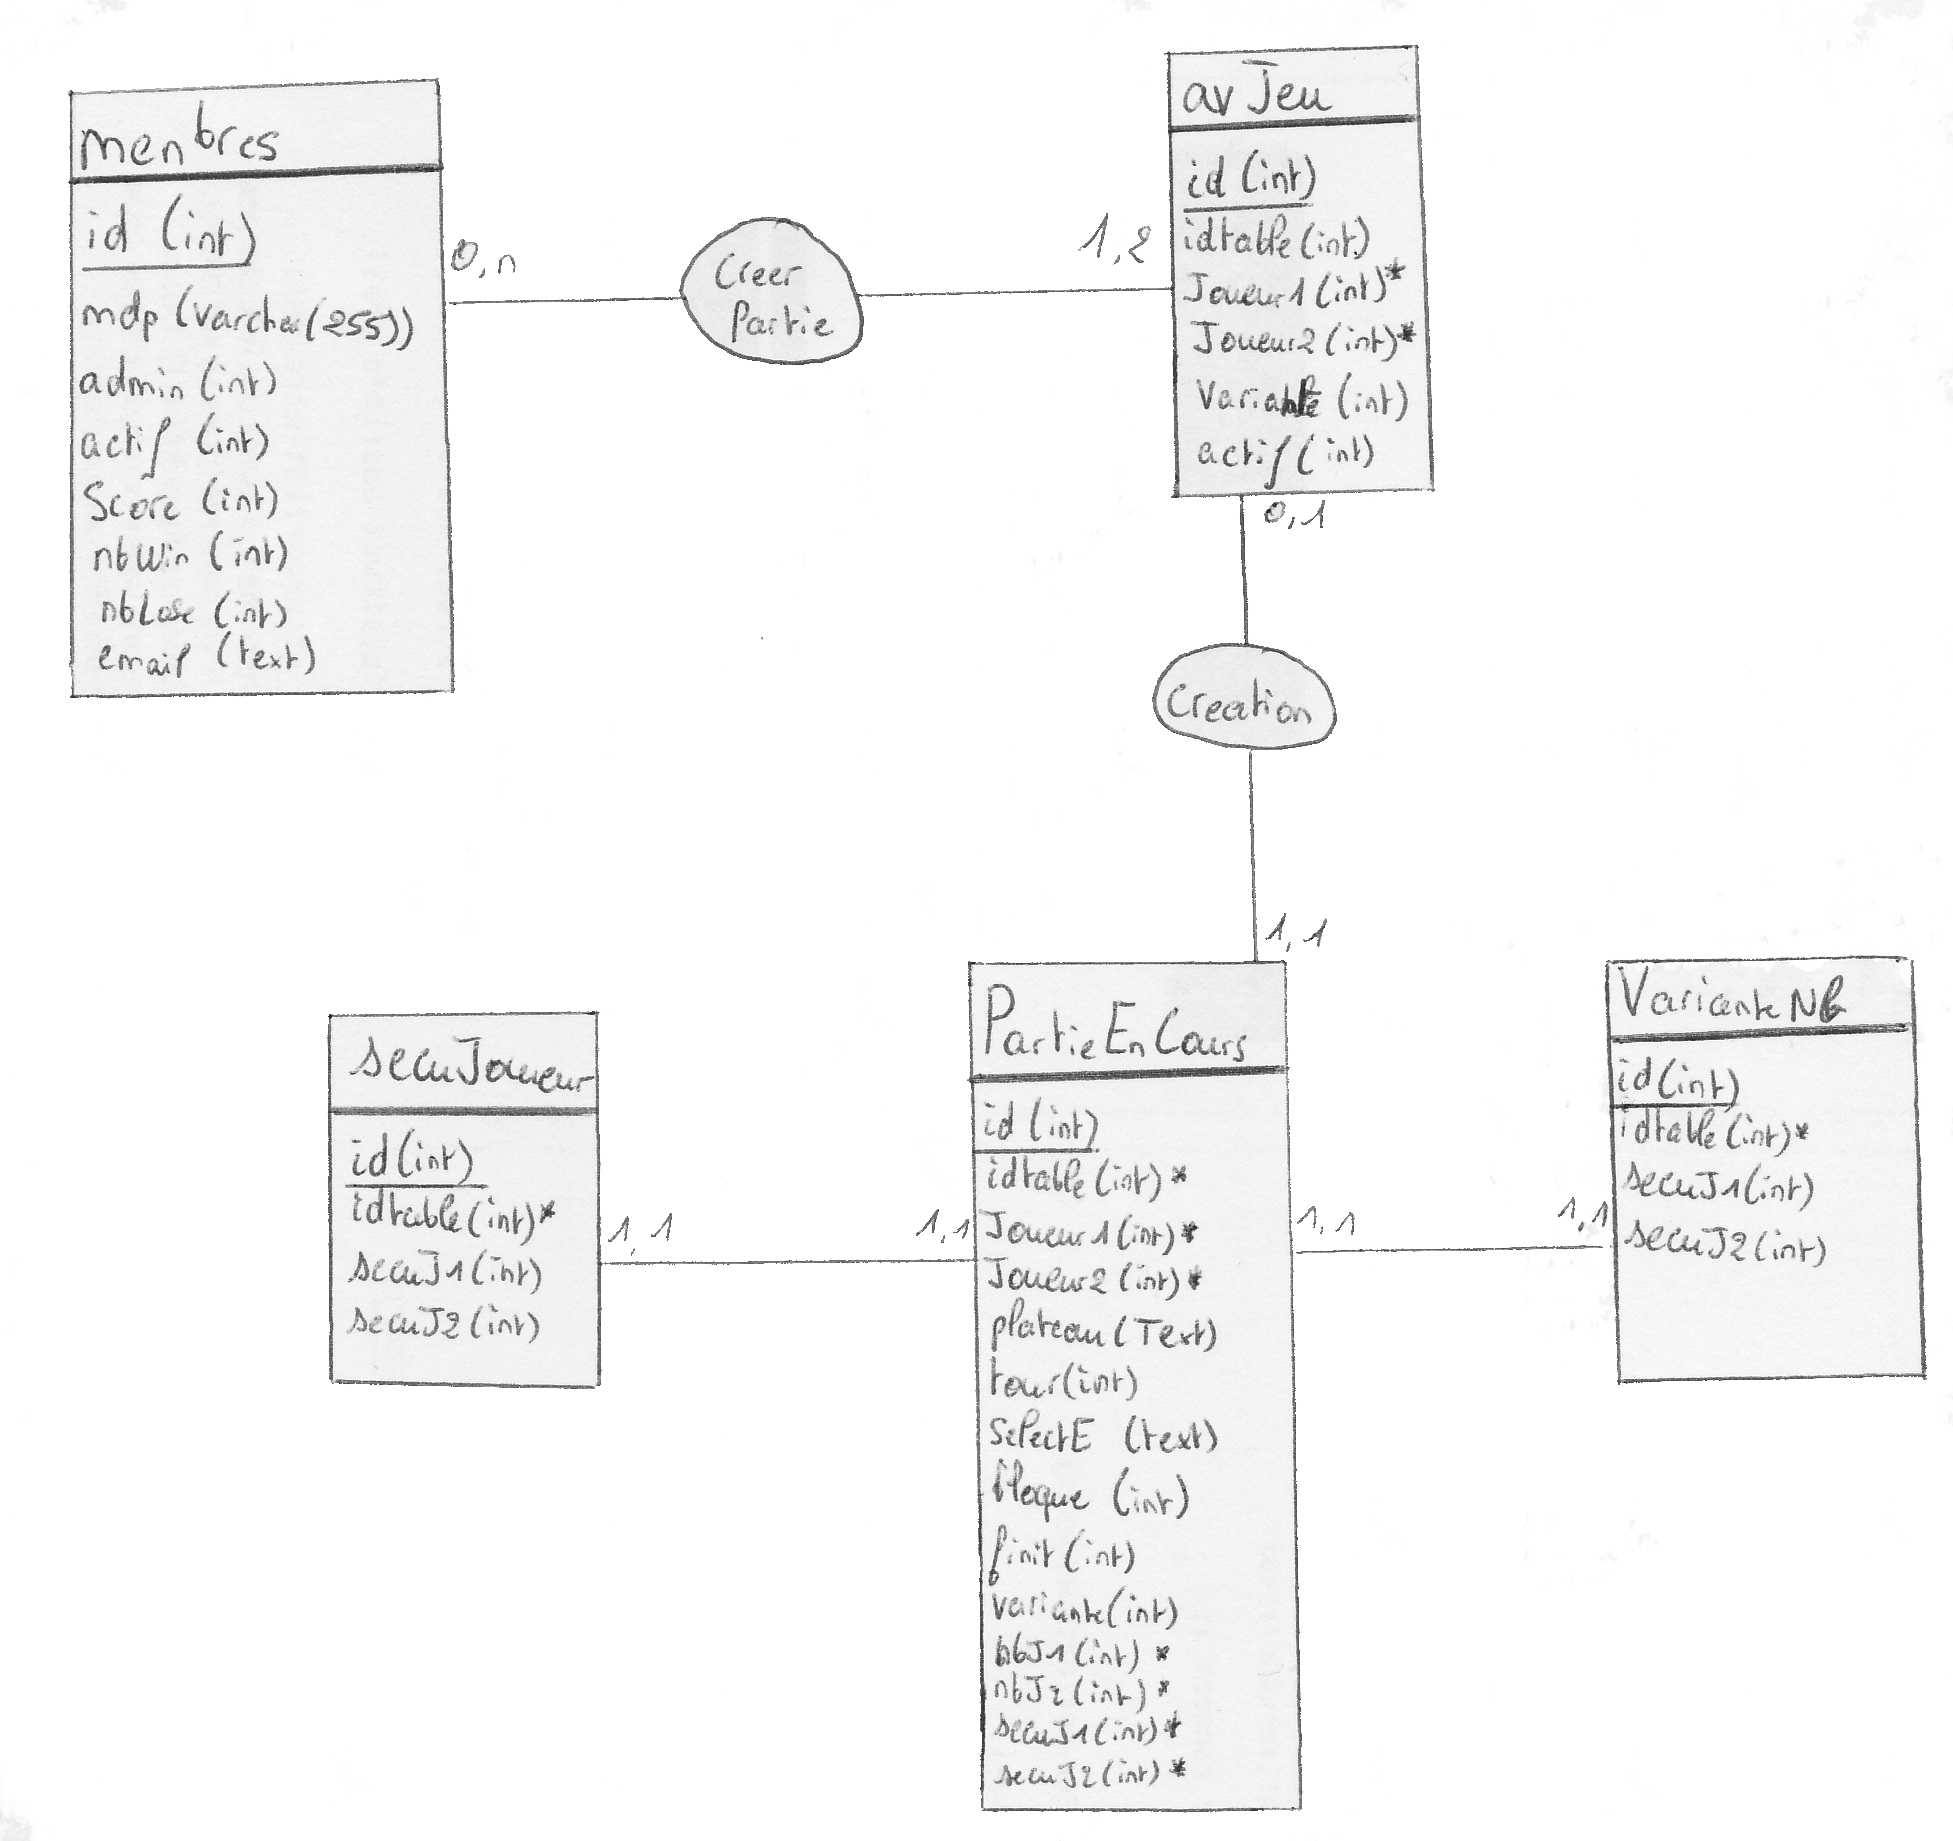 menbres
id (int)
mdp (varchar(255))
admin (int)
actif (int)
Score (int)
nbWin (int)
nbLose (int)
email (text)
0,n
Creer
Partie
1,2
avJeu
id (int)
idtable (int)
Joueur1 (int)*
Joueur2 (int)*
Variante (int)
actif (int)
0,1
Creation
1,1
secuJoueur
id (int)
idtable (int)*
secuJ1 (int)
secuJ2 (int)
1,1
1,1
PartieEnCours
id (int)
idtable (int)*
Joueur1 (int)*
Joueur2 (int)*
plateau (Text)
tour (int)
SelectE (text)
bloque (int)
finit (int)
variante (int)
nbJ1 (int)*
nbJ2 (int)*
secuJ1 (int)*
secuJ2 (int)*
1,1
1,1
VarianteNb
id (int)
idtable (int)*
secuJ1 (int)
secuJ2 (int)